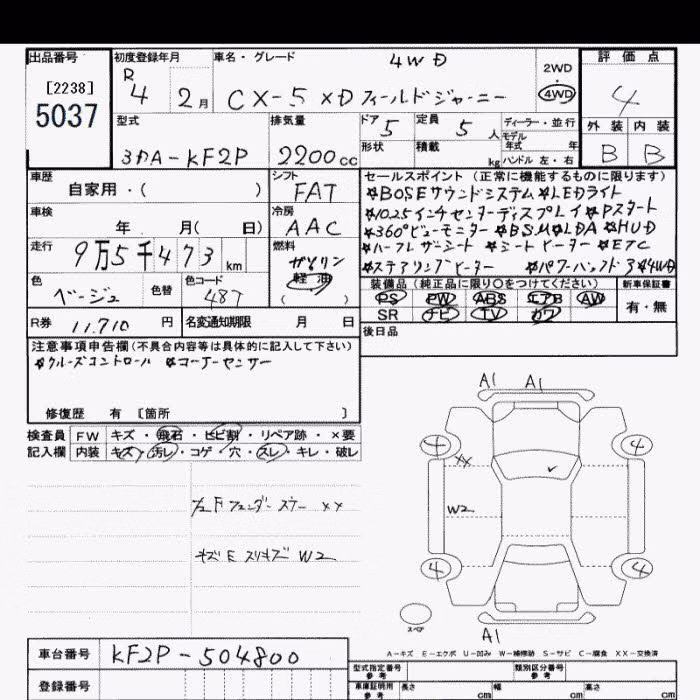 出品番号 初度登録年月 車名・グレード 4WD 評価点
[2238] R 4 2月 CX-5 XD フィールドジャーニー 2WD 4WD 4
5037
外装 内装
B B
型式 排気量 ドア 5 定員 5人 ディーラー・並行
3DA-KF2P 2200cc 形状 積載 kg モデル年式 年
ハンドル 左・右
車歴 シフト セールスポイント(正常に機能するものに限ります)
自家用・( ) FAT ☆BOSEサウンドシステム ☆LEDライト
車検 冷房 ☆10.25インチセンターディスプレイ ☆Pスタート
年 月( 日) AAC ☆360°ビューモニター ☆BSM ☆LDA ☆HUD
走行 燃料 ☆ハーフレザーシート ☆シートヒーター ☆ETC
9万5千473km ガソリン 軽油 ☆ステアリングヒーター ☆パワーバックドア ☆4WD
色 色替 色コード 装備品(純正品に限り○をつけてください) 新車保証書
ベージュ 487 PS PW ABS エアB AW 有・無
SR ナビ TV カワ
R券 11,710円 名変通知期限 月 日 後日品
注意事項申告欄(不具合内容等は具体的に記入して下さい)
☆クルーズコントロール ☆コーナーセンサー
修復歴 有 [箇所 ]
検査員 FW キズ・飛石・ヒビ割・リペア跡・×要
記入欄 内装 キズ・汚レ・コゲ・穴・スレ・キレ・破レ
A1 A1
4 4
XX
W2
フェンダー ステー XX
W2
4 4
スペア
A1
A-キズ E-エクボ U-凹み W-補修跡 S-サビ C-腐食 XX-交換済
車台番号 KF2P-504800
登録番号
型式指定番号 参考 類別区分番号 参考
車庫証明用 参考 長さ cm 幅 cm 高さ cm